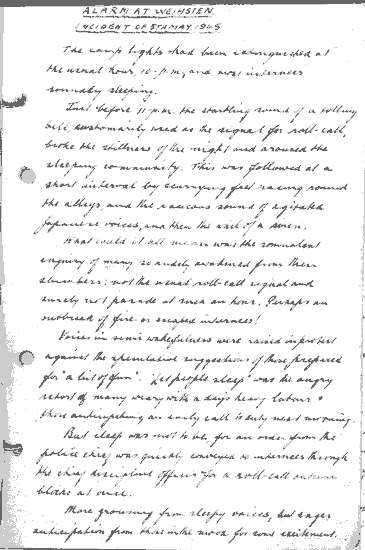 ALARM AT WEIHSIEN.
INCIDENT OF 5TH MAY, 1945
The camp lights had been extinguished at
the usual hour, 10-p.m, and most internees
soundly sleeping.
Just before 11-p.m. the startling sound of a tolling
bell, customarily used as the signal for roll-call,
broke the stillness of the night and aroused the
sleeping community. This was followed at a
short interval by scurrying feet racing round
the alleys, and the raucous sound of agitated
Japanese voices, and then the wail of a siren.
What could it all mean was the somnolent
enquiry of many so rudely awakened from their
slumbers: not the usual roll-call signal and
surely not parade at such an hour. Perhaps an
outbreak of fire or escaped internees!
Voices in semi wakefulness were raised in protest
against the speculative suggestions of those prepared
for "a bit of fun". "Let people sleep" was the angry
retort of many weary with a day's heavy labour &
those anticipating an early call to duty next morning.
But sleep was not to be, for an order from the
police chief was quickly conveyed to internees through
the chief discipline officer for a roll-call outside
blocks at once.
More grousing from sleepy voices, but eager
anticipation from those in the mood for some excitement.